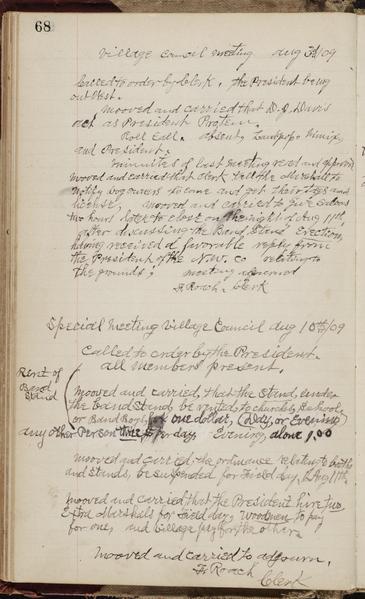 68
Village Council meeting Aug 3rd/09
Called to order by Clerk, the President being
out West.
Mooved and carried that D. J. Davis
act as President Protem.
Roll Call. absent,
and President.
minuites of last meeting read and approved
mooved and carried that Clerk tell the Marshall to
notify dog owners to come and get their tags and
license, mooved and carried to give Saloons
two hours later to close on the night of Aug 11th,
after discussing the Band Stand Erection,
having received a favorable reply from
the President of the N.W. Co relating to
the grounds; meeting adjourned
Roach. Clerk
Special Meeting Village Council Aug 10th/09
Called to order by the President.
all members present.
Rent of
Band
Stand
Mooved and carried, that the Stand, under
the Band Stand be rented to churches, Schools,
or Band Boys one dollar, (Day, or Evening)
any other Person three $ per day, Evening, alone 1,00
mooved and carried the ordinance relating to
and Stands, be suspended for Field day, Aug 11th,
mooved and carried that the President hire two
Extra Marshals for Field day, Woodmen to pay
for one, and village pay for the other.
Mooved and carried to adjourn.
Roach
Clerk